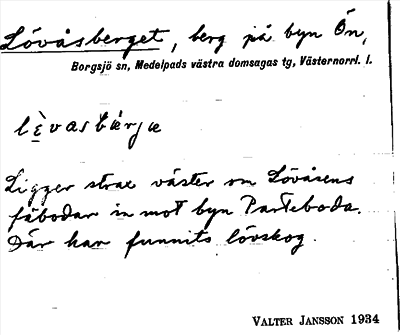 Lövåsberget, berg på byn Ön,
Borgsjö sn, Medelpads västra domsagas tg, Västernorrl. l.
lèvasbærjæ
Ligger strax väster om Lövåsens
fäbodar in mot byn Parteboda.
Där har funnits lövskog.
VALTER JANSSON 1934